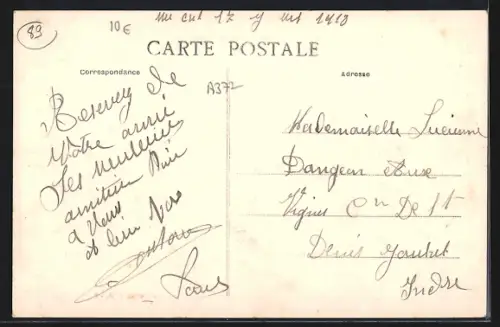 89
10€
17 1910
CARTE POSTALE
Correspondance
Adresse
A372
Recevez de
Votre amie
Ses meilleures
amitiés
a Vous
et bien
Mademoiselle Lucienne
Dangeon Aux
Vignes Cn De St
Denis Jouhet
Indre